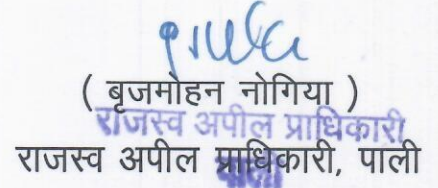 ( बृजमोहन नोगिया )
राजस्व अपील प्राधिकारी
राजस्व अपील प्राधिकारी, पाली